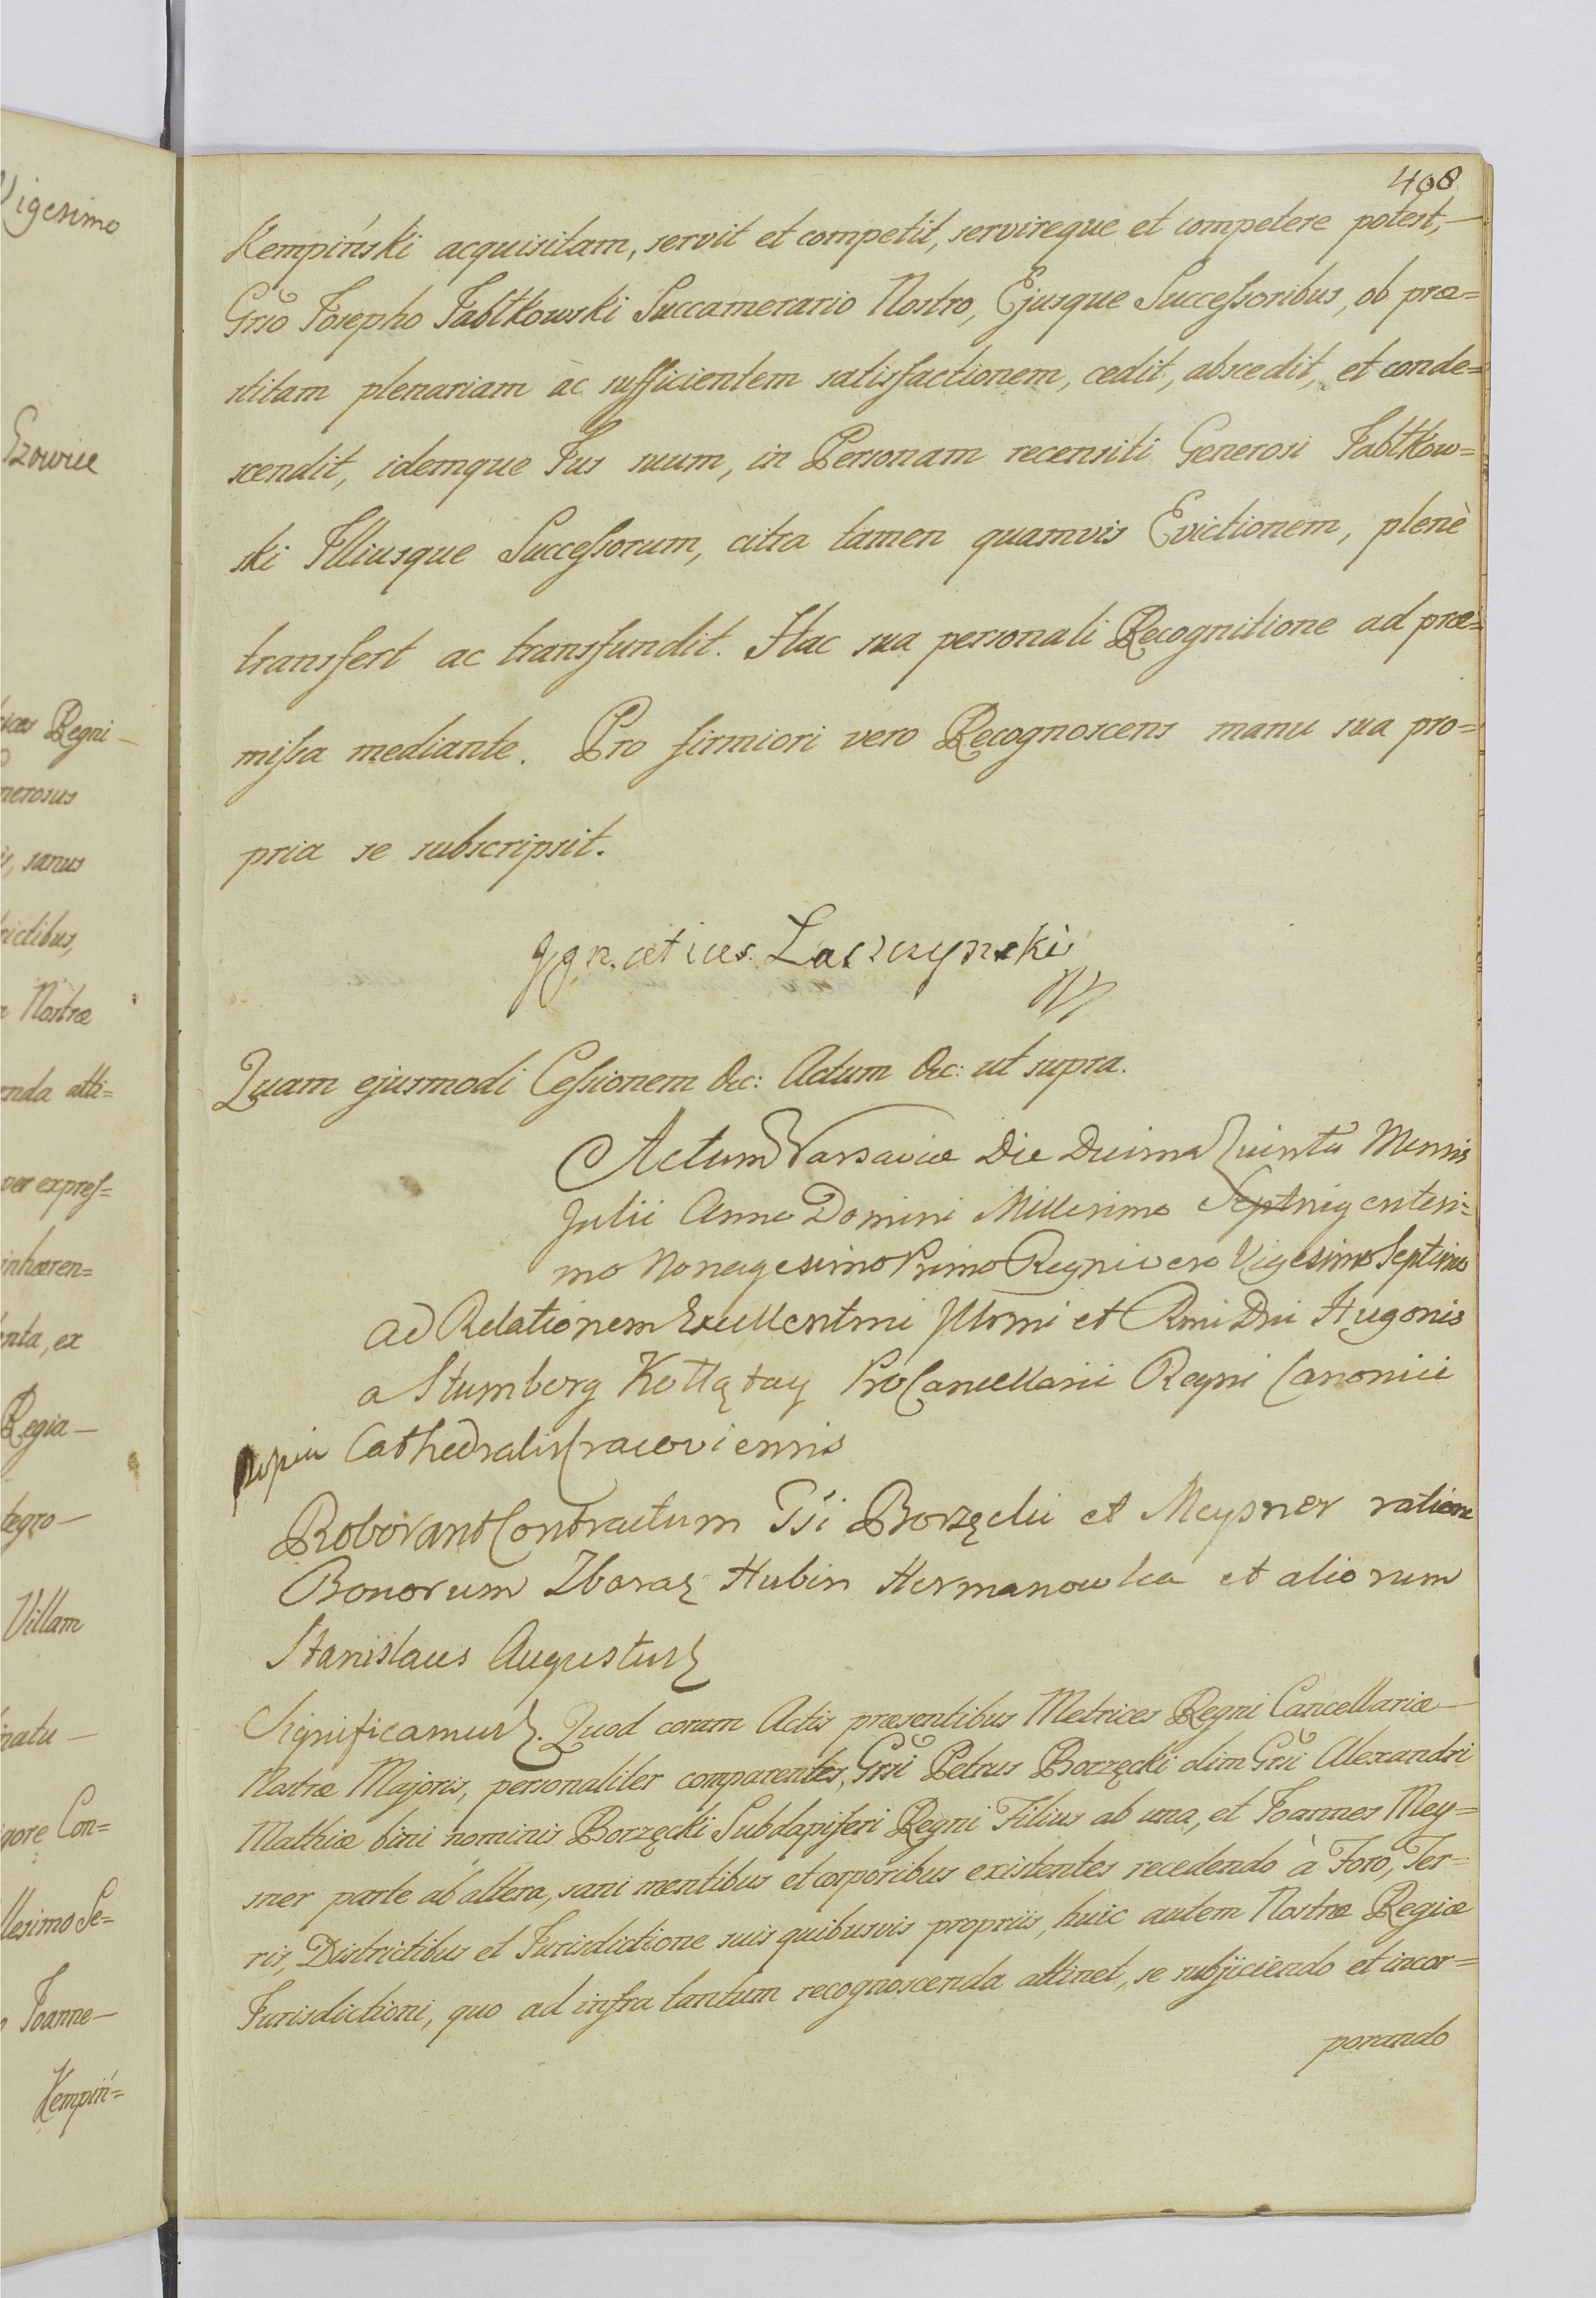 Vigesimo
ices Regni
nerosus
, sanus
rictibus,
Nostræ
enda atti=
per expres=
inhæren=
enta, ex
Regia
tegro
Villam
natu
gore Con=
llesimo Se=
Joanne
Kempiń=
408
Kempiński acquisitam, servit et competit, servireque et competere potest,
Grso Josepho Jabłkowski Succamerario Nostro, Ejusque Successoribus, ob præ=
stitam plenariam àc sufficientem satisfactionem, cedit, abscedit, et conde=
scendit, idemque Jus suum, in Personam recensiti Generosi Jabłkow=
ski Illiusque Successorum, citra tamen quamvis Evictionem, plenè
transfert ac transfundit. Hac sua personali Recognitione ad præ=
missa mediante. Pro firmiori vero Recognoscens manu sua pro=
pria se subscripsit.
Jgnatius Laszczynski
Quam ejusmodi Cessionem &c: Actum &c: ut supra.
Actum Varsaviæ Die Decima Quinta Mensis
Julii Anno Domini Millesimo Septingentesi=
mo Nonagesimo Primo Regni vero Vigesimo Septimo
ad Relationem Excellentmi Jllrmi et Rmi Dni Hugonis
a Stumberg Kołłątay ProCancellarii Regni Canonici
Cathedralis Cracoviensis
Roborant Contractum Gsi Borzęcki et Meysner ratione
Bonorum Zbaraż Hubin Hermanowka et aliorum
Stanislaus Augustus
Significamus. Quod coram Actis præsentibus Metrices Regni Cancellariæ
Nostræ Majoris, personaliter comparentes, Grsi Petrus Borzęcki olim Grsi Alexandri
Mathiæ bini nominis Borzęcki Subdapiferi Regni Filius ab una, et Joannes Mey=
sner parte ab altera, sani mentibus et corporibus existentes recedendo à Foro, Ter=
ris, Districtibus et Jurisdictione suis quibusvis propriis, huic autem Nostræ Regiæ
Jurisdictioni, quo ad infra tantum recognoscenda attinet, se subjiciendo et incor=
porando